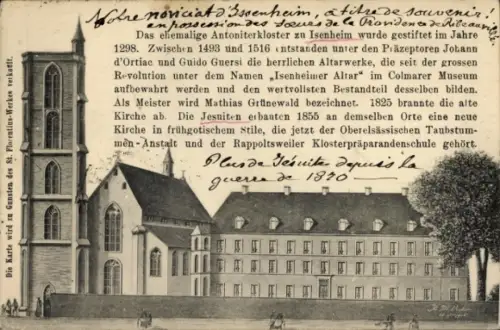 Notre noviciat d'Isenheim, à titre de souvenir,
en possession des sœurs de la Providence de Ribeauvillé
Das ehemalige Antoniterkloster zu Isenheim wurde gestiftet im Jahre
1298. Zwischen 1493 und 1516 entstanden unter den Präzeptoren Johann
d'Ortiac und Guido Guersi die herrlichen Altarwerke, die seit der grossen
Revolution unter dem Namen „Isenheimer Altar" im Colmarer Museum
aufbewahrt werden und den wertvollsten Bestandteil desselben bilden.
Als Meister wird Mathias Grünewald bezeichnet. 1825 brannte die alte
Kirche ab. Die Jesuiten erbauten 1855 an demselben Orte eine neue
Kirche in frühgotischem Stile, die jetzt der Oberelsässischen Taubstum-
men-Anstalt und der Rappoltsweiler Klosterpräparandenschule gehört.
Plus de Jésuites depuis la
guerre de 1870
Die Karte wird zu Gunsten des St. Florentius-Werkes verkauft.